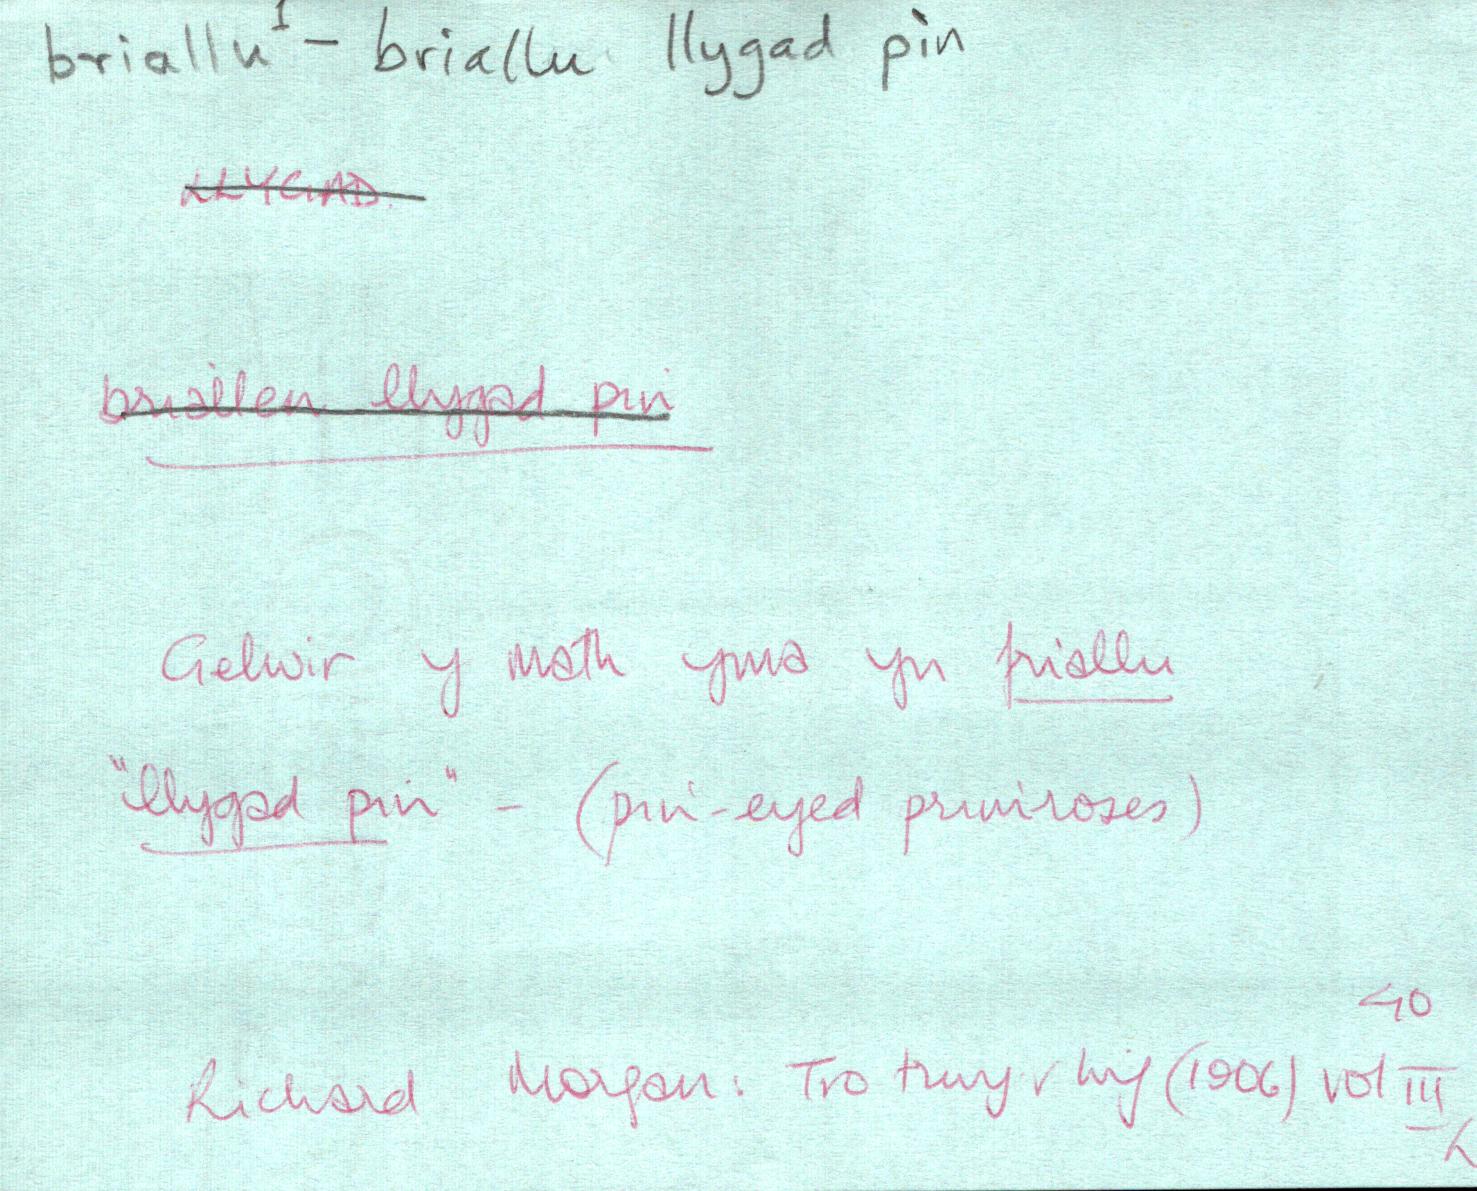 briallu¹ - briallu llygad pin
LLYGAD
briallen llygad pin
Gelwir y math yma yn friallu
"llygad pin" - (pin-eyed primroses)
40
Richard Morgan: Tro trwy'r wig (1906) vol III